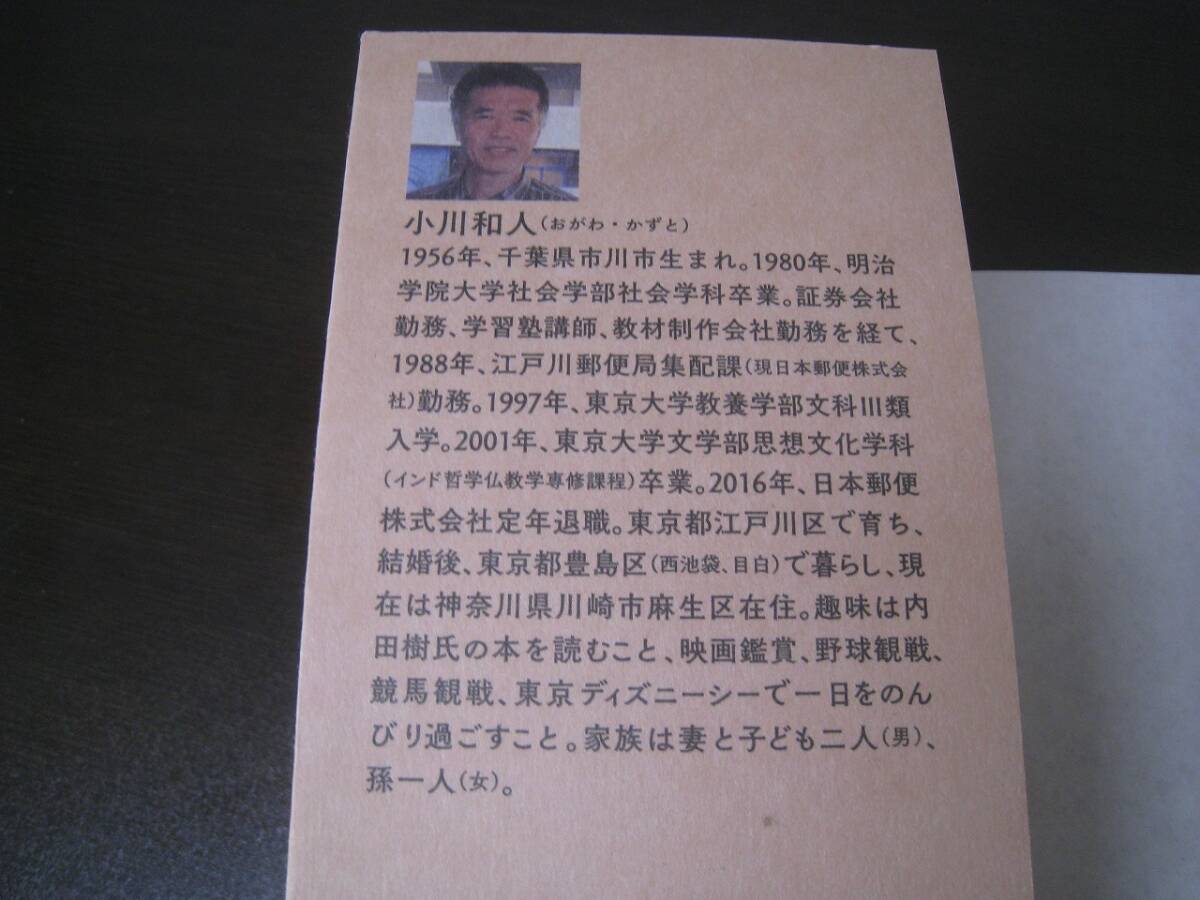 小川和人(おがわ・かずと)
1956年、千葉県市川市生まれ。1980年、明治
学院大学社会学部社会学科卒業。証券会社
勤務、学習塾講師、教材制作会社勤務を経て、
1988年、江戸川郵便局集配課(現日本郵便株式会
社)勤務。1997年、東京大学教養学部文科III類
入学。2001年、東京大学文学部思想文化学科
(インド哲学仏教学専修課程)卒業。2016年、日本郵便
株式会社定年退職。東京都江戸川区で育ち、
結婚後、東京都豊島区(西池袋、目白)で暮らし、現
在は神奈川県川崎市麻生区在住。趣味は内
田樹氏の本を読むこと、映画鑑賞、野球観戦、
競馬観戦、東京ディズニーシーで一日をのん
びり過ごすこと。家族は妻と子ども二人(男)、
孫一人(女)。